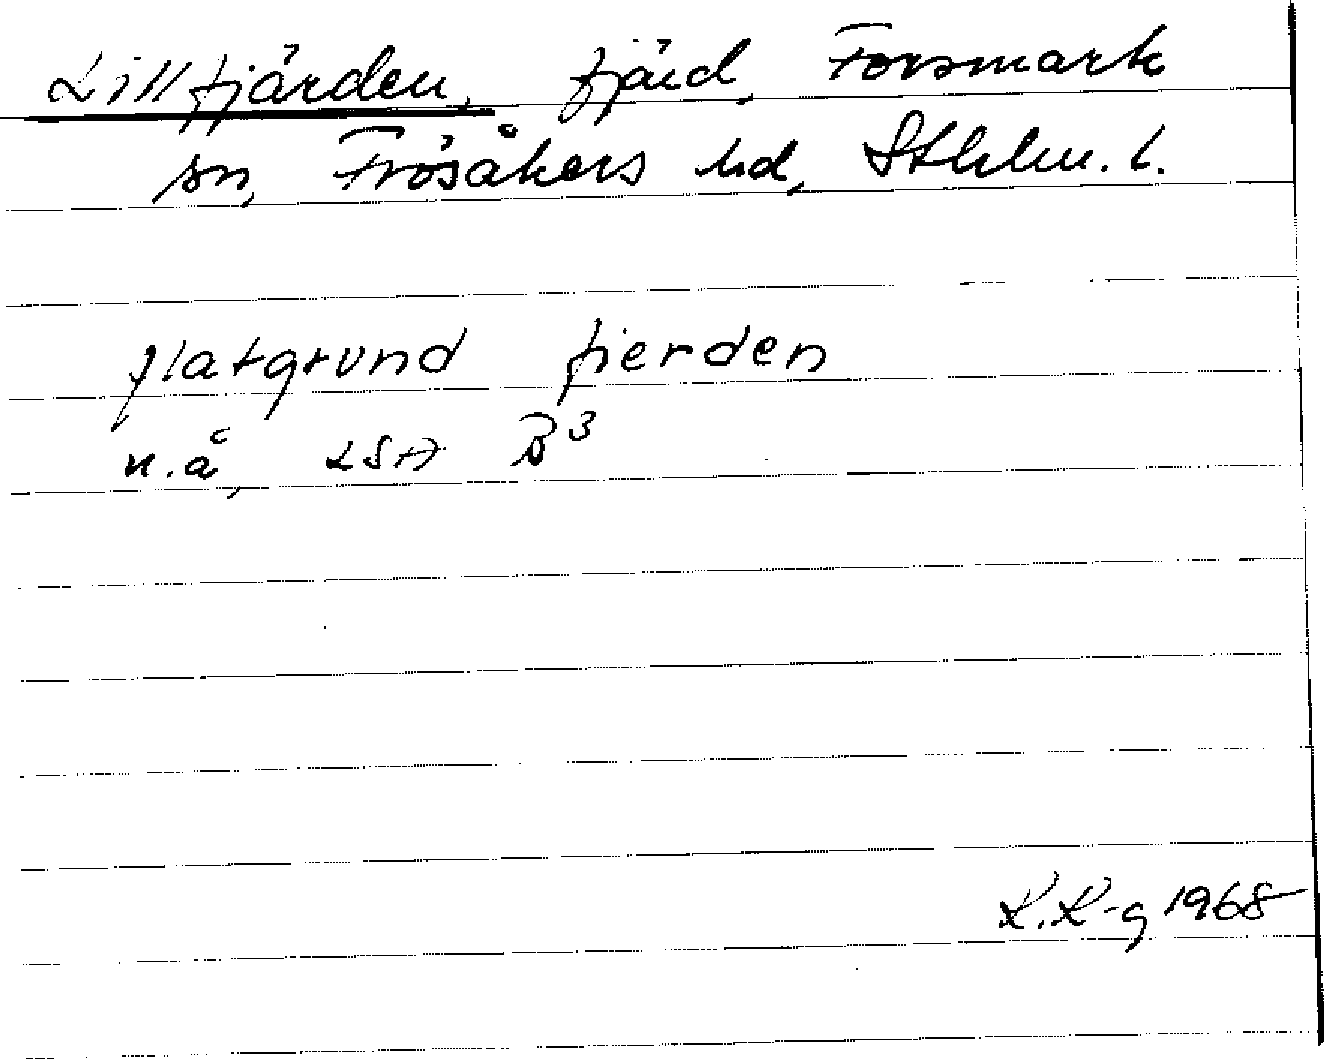 Lillfjärden, fjärd, Forsmark
sn, Frösåkers hd, Sthlm. l.
flatgrund fierden
n.å, LSA B³
L.L-g 1968